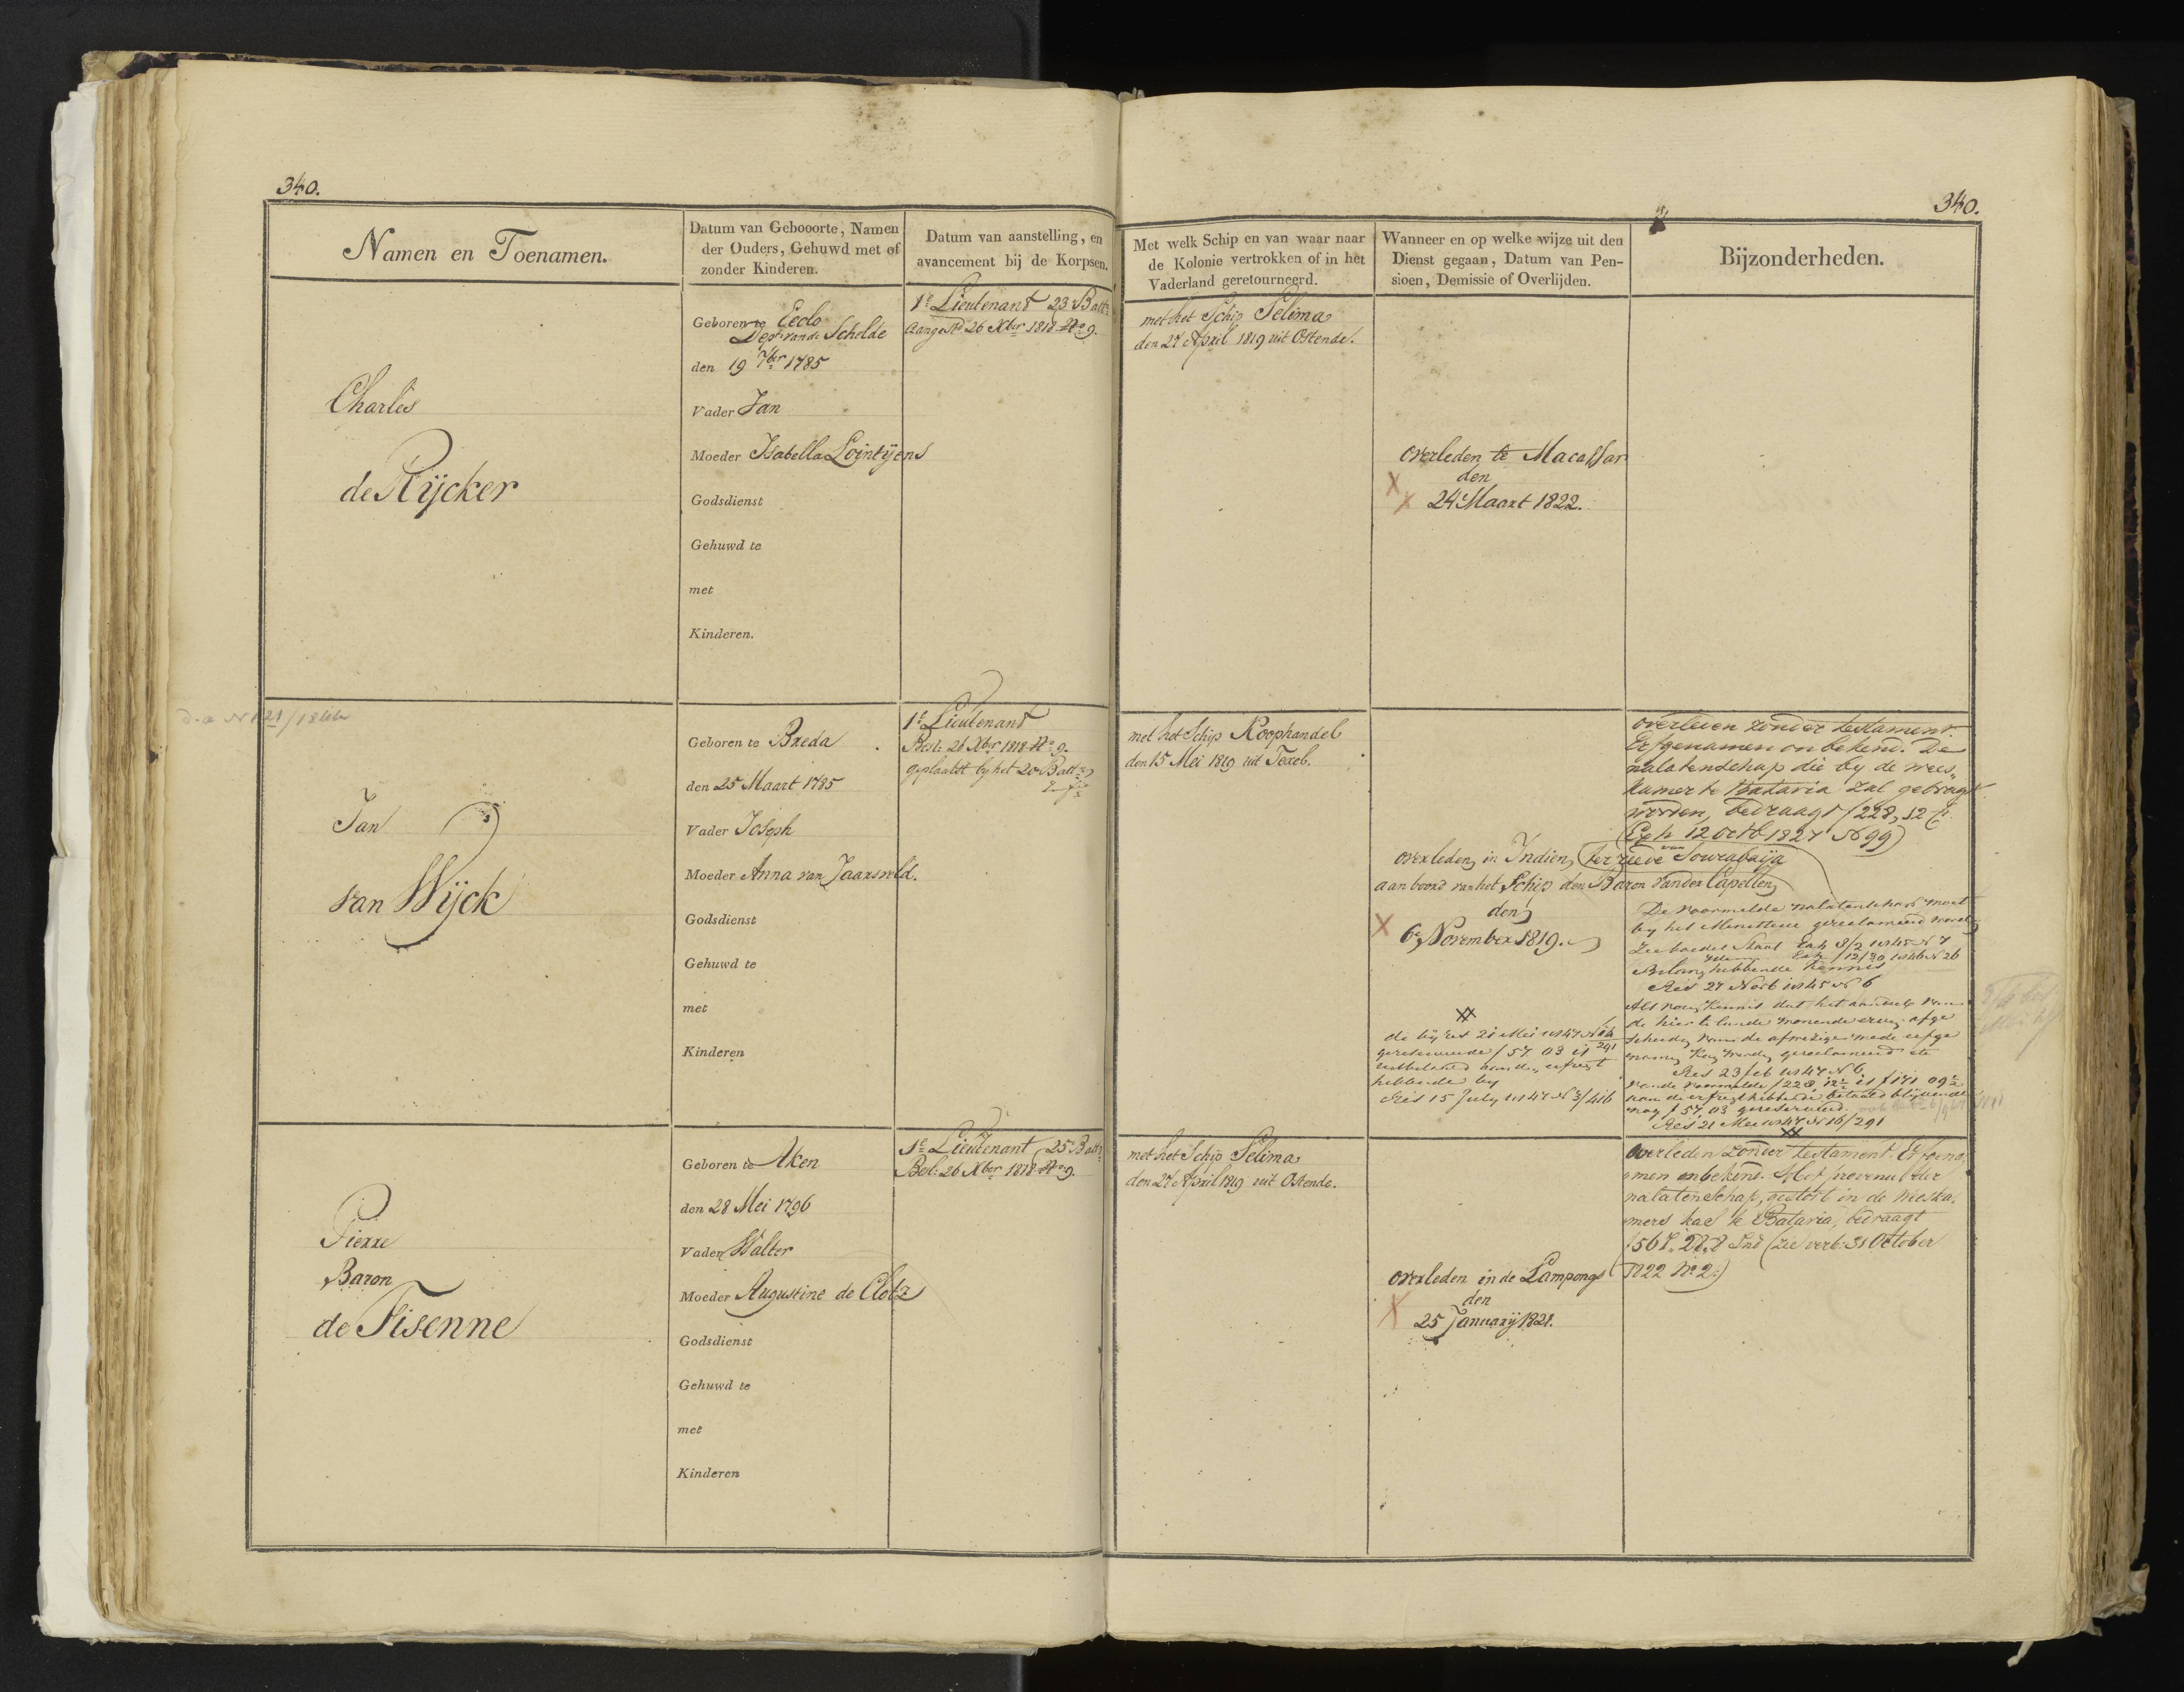 340.
340.
Namen en Toenamen.
Datum van Gebooorte, Namen
der Ouders, Gehuwd met of
zonder Kinderen.
Datum van aanstelling, en
avancement bij de Korpsen.
Met welk Schip en van waar naar
de Kolonie vertrokken of in het
Vaderland geretourneerd.
Wanneer en op welke wijze uit den
Dienst gegaan, Datum van Pen-
sioen, Demissie of Overlijden.
Bijzonderheden.
Charles
de Rijcker
Geboren te Eeclo
Dept. van de Schelde
den 19 7ber 1785
Vader Jan
Moeder Isabella Lointijens
Godsdienst
Gehuwd te
met
Kinderen.
1e Lieutenant 23 Batt:
Aangestd 26 Xber 1818 No 9.
met het Schip Selima
den 27 April 1819 uit Ostende.
overleden te Macassar
den
24e Maart 1822.
Jan
van Wijck
Geboren te Breda
den 25 Maart 1785
Vader Joseph
Moeder Anna van Jaarsveld.
Godsdienst
Gehuwd te
met
Kinderen
1e Lieutenant
Best: 26 Xber 1818 No 9.
geplaatst by het 20e Batt:
Inf:
met het Schip Koophandel
den 15 Mei 1819 uit Texel.
overleden in Indien, ter reede van Sourabaija
aan boord van het Schip den Baron van der Capellen
den
6e November 1819.
XX
de bij res 21 Mei 1847 N 16/291
gereserveerde f 57.03 is
uitbetaald aan den erfregt
hebbende by
Res 15 July 1847 N 3/416
overleden zonder testament.
Erfgenamen onbekend. De
nalatenschap die by de wees„
kamer te Batavia zal gebragt
worden, bedraagt f 228,12
(Exh 12 Octb 1827 No 99)
De voormelde nalatenschap moet
by het Ministerie gereclameerd worden
Zee boedel Staat Exh 8/2 1845 N 7
Belanghebbende Kennis
Res 27 Novb 1845 N 6
de hier te lande wonende erven afge
scheiden van de afwezige mede erfge
namen kan worden gereclameerd etc
Res 23 feb 1847 N 6.
van de erfregthebbende betaald blijvende
nog f 57,03 gereserveerd.
Res 21 Mei 1847 N 16/291
XX
Pierre
Baron
de Fisenne
Geboren te Aken
den 28 Mei 1796
Vader Walter
Moeder Augustine de Clotz
Godsdienst
Gehuwd te
met
Kinderen
1e Lieutenant 25e Batt:
Best: 26 Xber 1818 No 9.
met het Schip Selima
den 27 April 1819 uit Ostende.
overleden in de Lampongs
den
25 Januarij 1821.
Overleden zonder testament. Erfgena
men onbekend. Het provenu der
nalatenschap, gestort in de Weeska,
mers kas te Batavia, bedraagt
f 567.28.8 Ind (zie verb: 31 October
1822 No 2.)